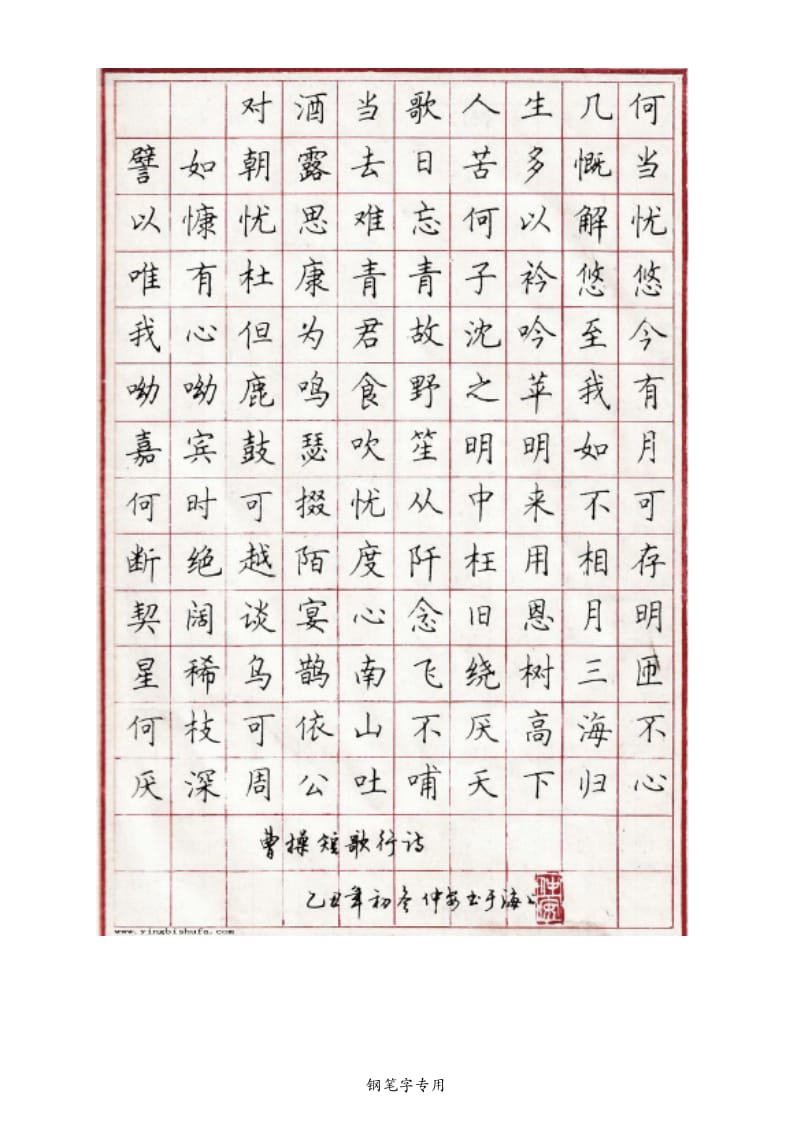 对酒当歌人生几何
譬如朝露去日苦多慨当
以慷忧思难忘何以解忧
唯有杜康青青子衿悠悠
我心但为君故沈吟至今
呦呦鹿鸣食野之苹我有
嘉宾鼓瑟吹笙明明如月
何时可掇忧从中来不可
断绝越陌度阡枉用相存
契阔谈宴心念旧恩月明
星稀乌鹊南飞绕树三匝
何枝可依山不厌高海不
厌深周公吐哺天下归心
曹操短歌行诗
乙丑年初冬仲安书于海上
www.yingbishufa.com
钢笔字专用